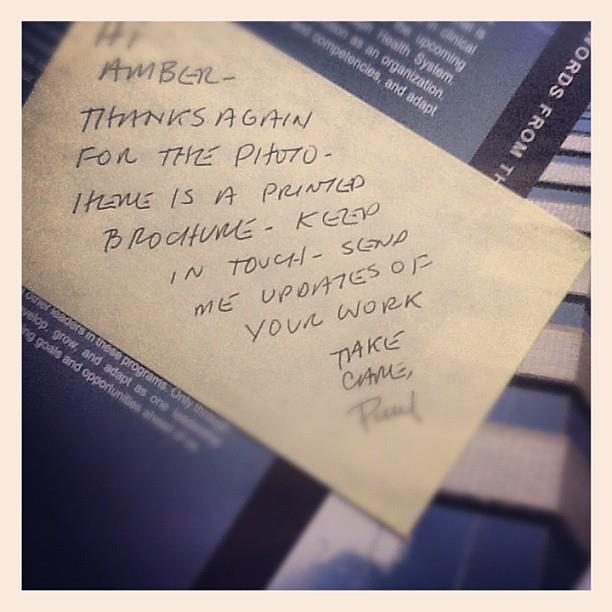 HI
AMBER-
THANKS AGAIN
FOR THE PHOTO-
HERE IS A PRINTED
BROCHURE- KEEP
IN TOUCH- SEND
ME UPDATES OF
YOUR WORK
TAKE
CARE,
Paul
in clinical
the upcoming
Health System.
as an organization.
and competencies, and adapt
WORDS FROM TH
other leaders in these programs. Only through
develop, grow, and adapt as one leadership
goals and opportunities ahead of us.